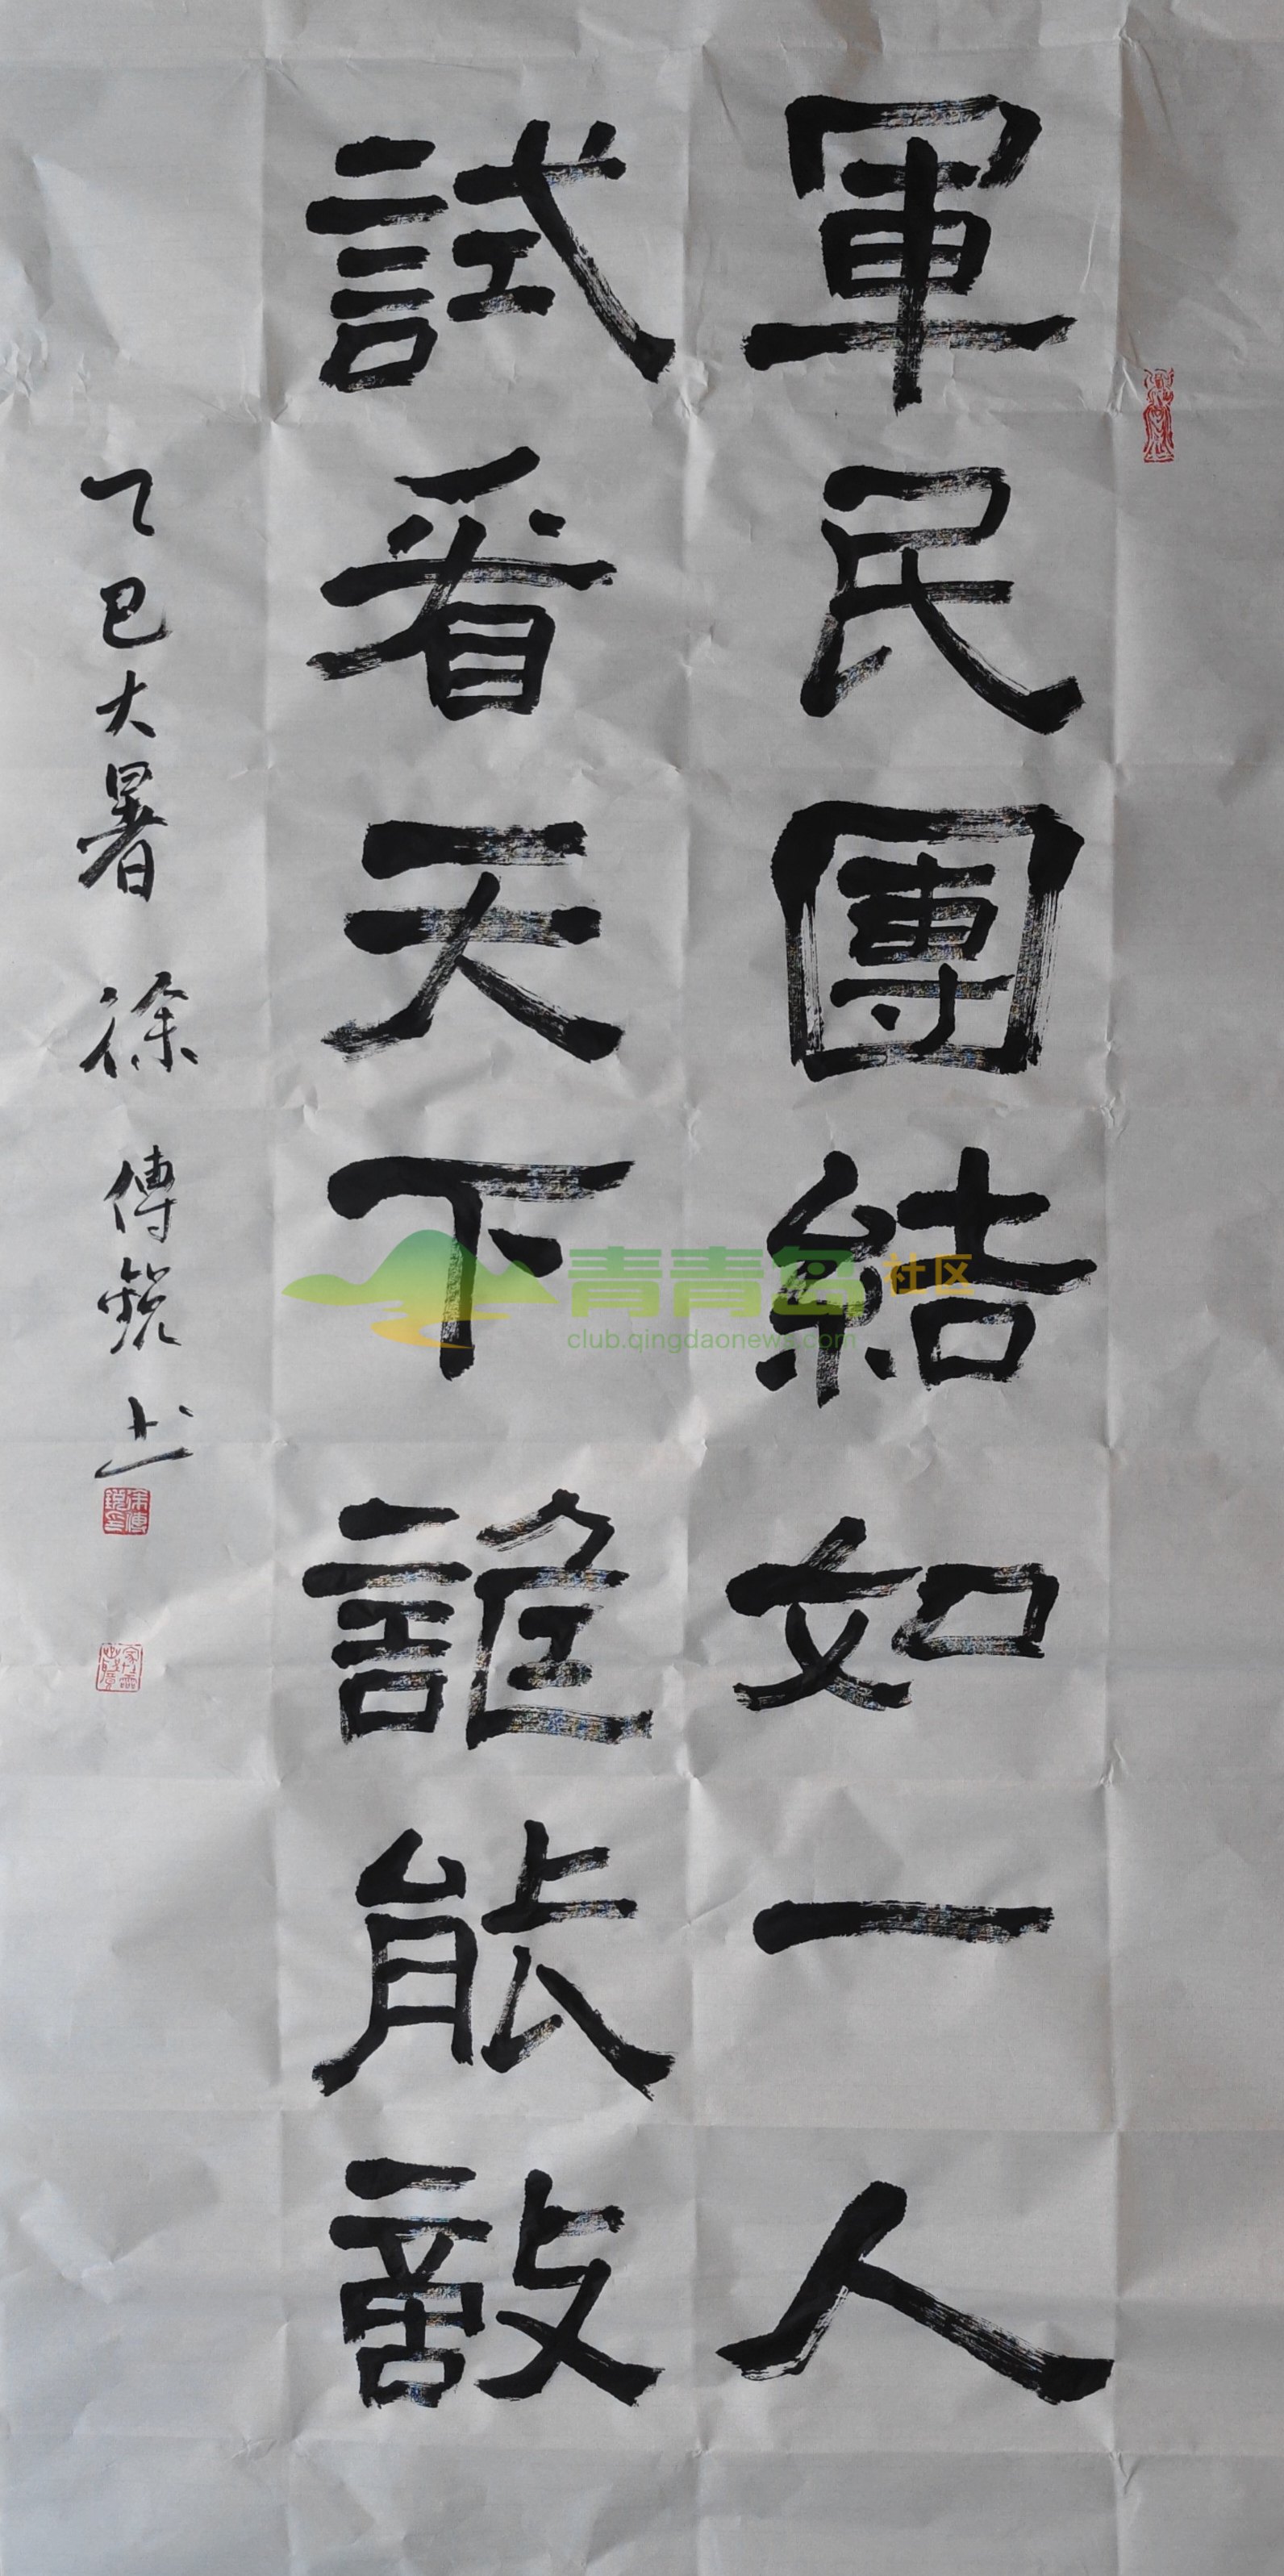 軍民團結如一人
試看天下誰能敵
乙巳大暑 徐傳銳书
徐傳銳印
青青岛社区
club.qingdaonews.com